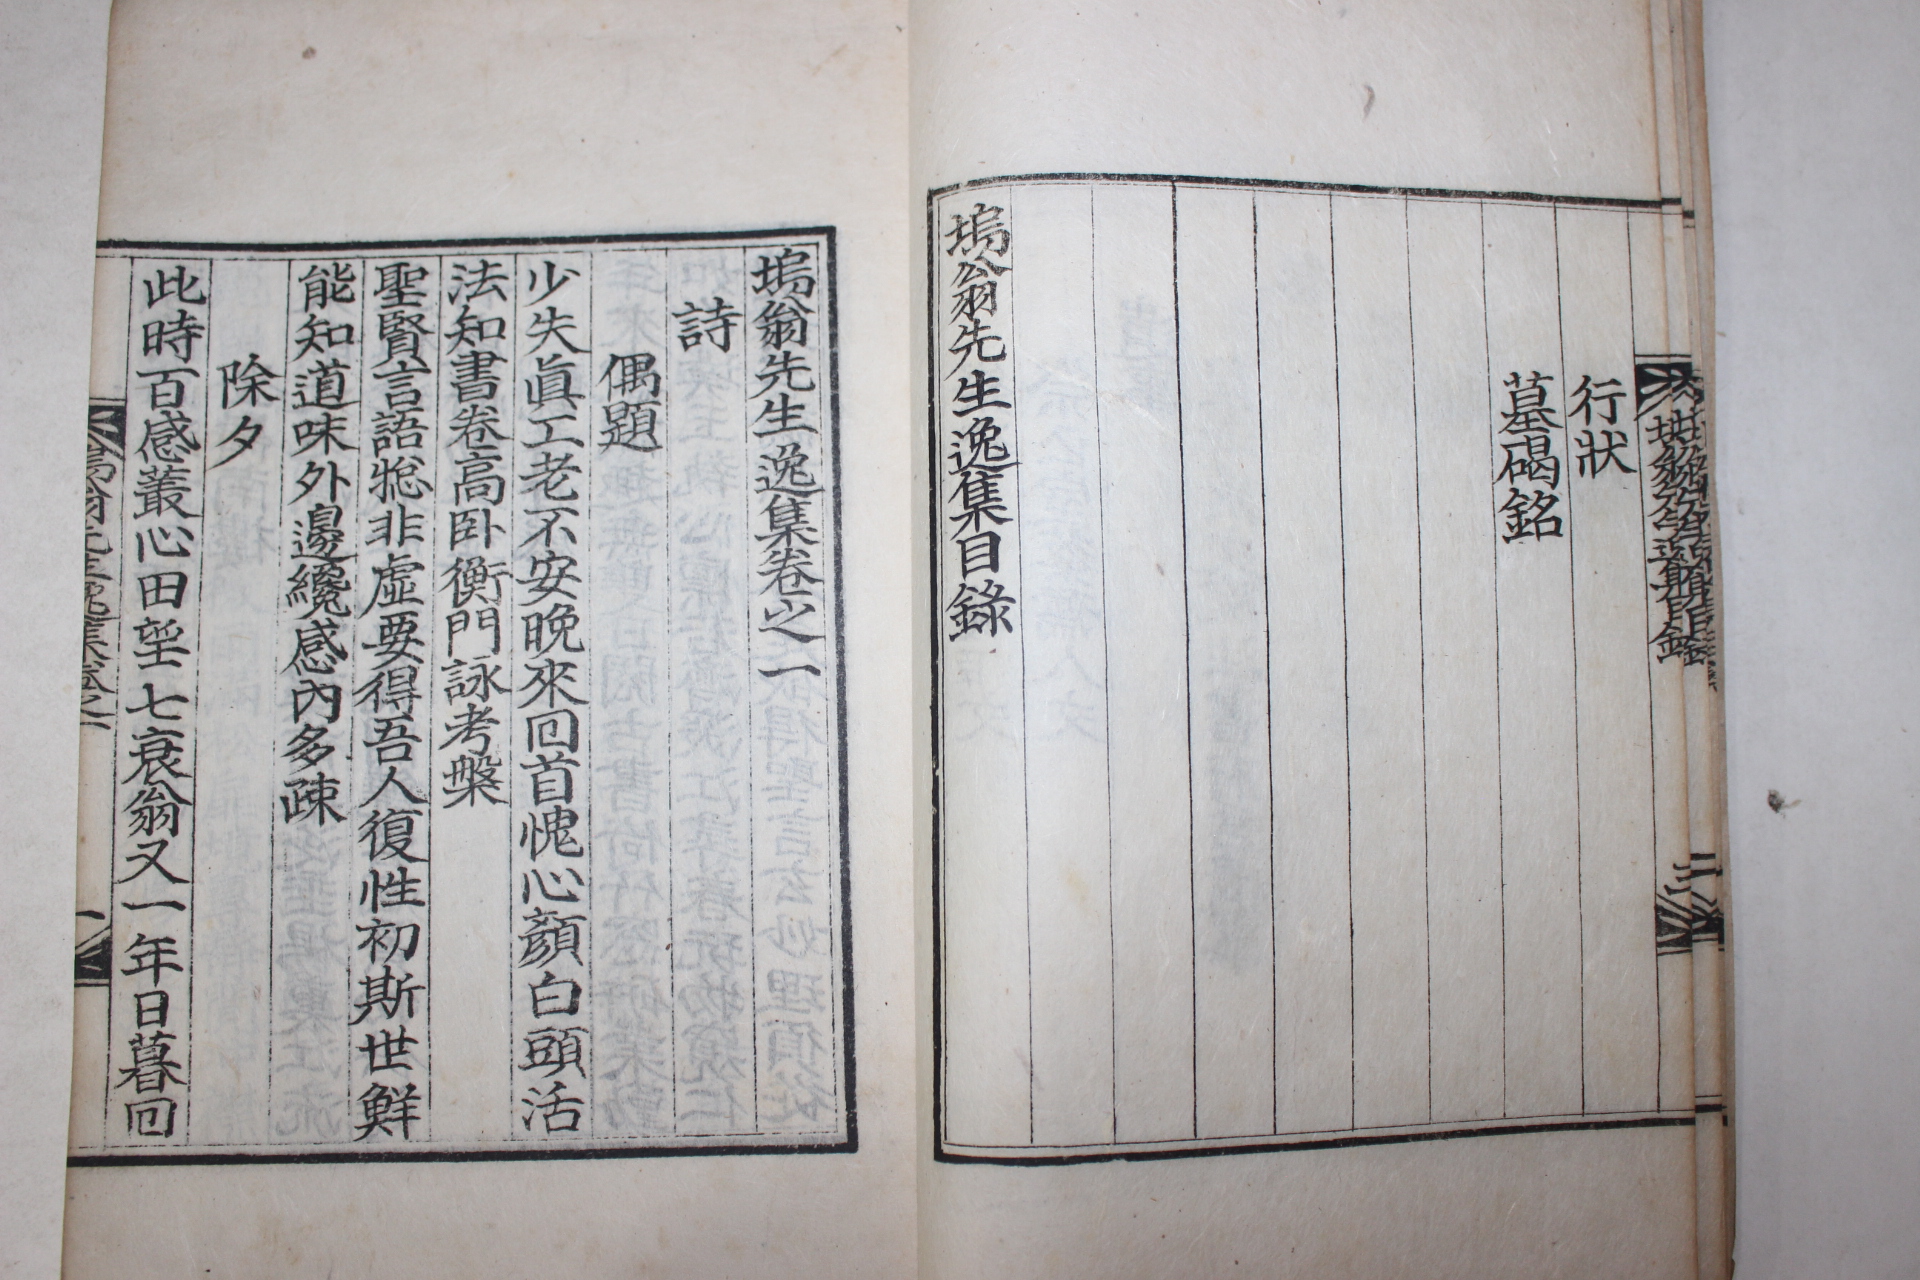 行狀
墓碣銘
塢翁先生逸集目錄
塢翁先生逸集卷之一
詩
偶題
少失眞工老不安晩來回首愧心顔白頭活
法知書卷高卧衡門詠考槃
聖賢言語揔非虛要得吾人復性初斯世鮮
能知道味外邊纔感內多疎
除夕
此時百感叢心田望七衰翁又一年日暮回